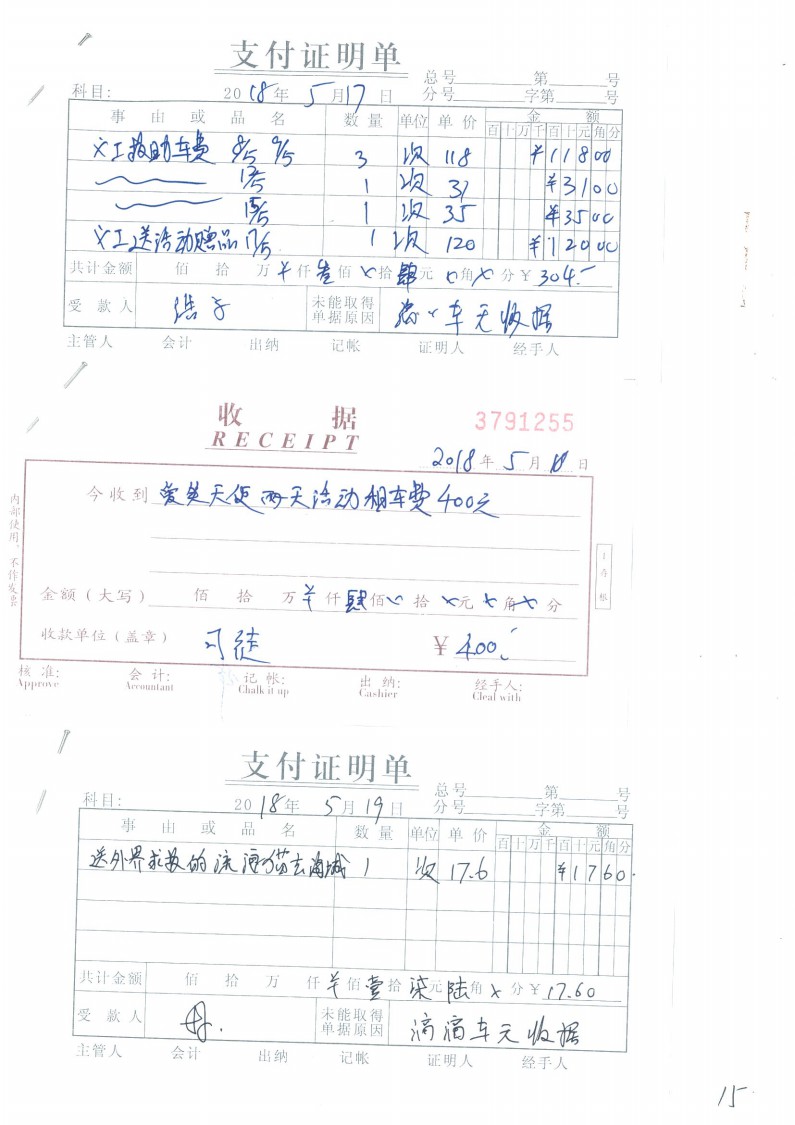 支付证明单
总号 第 号
科目: 2018年 5月17日 分号 字第 号
事由或品名 数量 单位 单价 金额
百十万千百十元角分
义工救助车费 8/5 9/5 3 次 118 ¥11800
1 次 31 ¥3100
1 次 35 ¥3500
义工送活动赠品 17/5 1 次 120 ¥12000
共计金额 佰 拾 万 ¥ 仟 叁 佰 × 拾 肆 元 × 角 × 分 ¥ 304.-
受款人 浩子 未能取得单据原因 车无收据
主管人 会计 出纳 记帐 证明人 经手人
收据 3791255
RECEIPT
2018年 5月 日
今收到 爱笑天使两天活动租车费400元
金额(大写) 佰 拾 万 ¥ 仟 肆 佰 × 拾 × 元 × 角 × 分
收款单位(盖章) 司徒 ¥ 400.-
核准: 会计: 记帐: 出纳: 经手人:
Approve Accountant Chalk it up Cashier Cleal with
内部使用、不作发票
支付证明单
总号 第 号
科目: 2018年 5月19日 分号 字第 号
事由或品名 数量 单位 单价 金额
百十万千百十元角分
送外界求救的流浪猫去海城 1 次 17.6 ¥1760
共计金额 佰 拾 万 仟 ¥ 佰 壹 拾 柒 元 陆 角 × 分 ¥ 17.60
受款人 未能取得单据原因 滴滴车无收据
主管人 会计 出纳 记帐 证明人 经手人
15